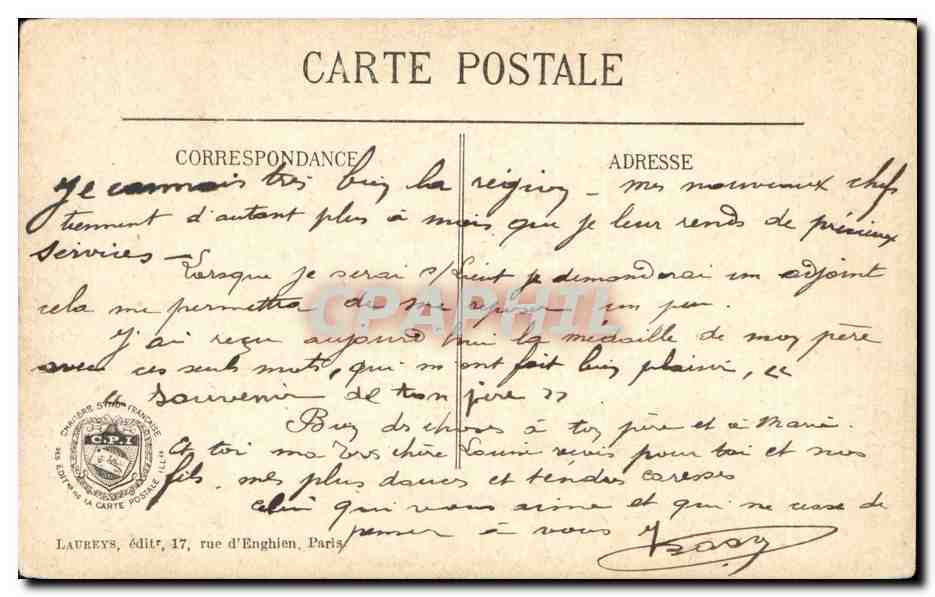 CARTE POSTALE
CORRESPONDANCE
ADRESSE
Je connais très bien la région – mes nouveaux chefs
tiennent d'autant plus à mois que je leur rends de précieux
services –
Lorsque je serai s/Lieut je demanderai un adjoint
cela me permettra de me reposer un peu.
J'ai reçu aujourd'hui la médaille de mon père
avec ces seuls mots, qui m'ont fait bien plaisir, «
« Souvenir de ton père »
Bien des choses à ton père et à Maria.
et toi ma très chère Louise reçois pour toi et nos
fils, mes plus douces et tendres caresses
celui qui vous aime et qui ne cesse de
penser à vous
CPAPHIL
CHAMBRE SYND. FRANÇAISE
C.P.I
DES EDITrs DE LA CARTE POSTALE ILLée
LAUREYS, éditr, 17, rue d'Enghien, Paris